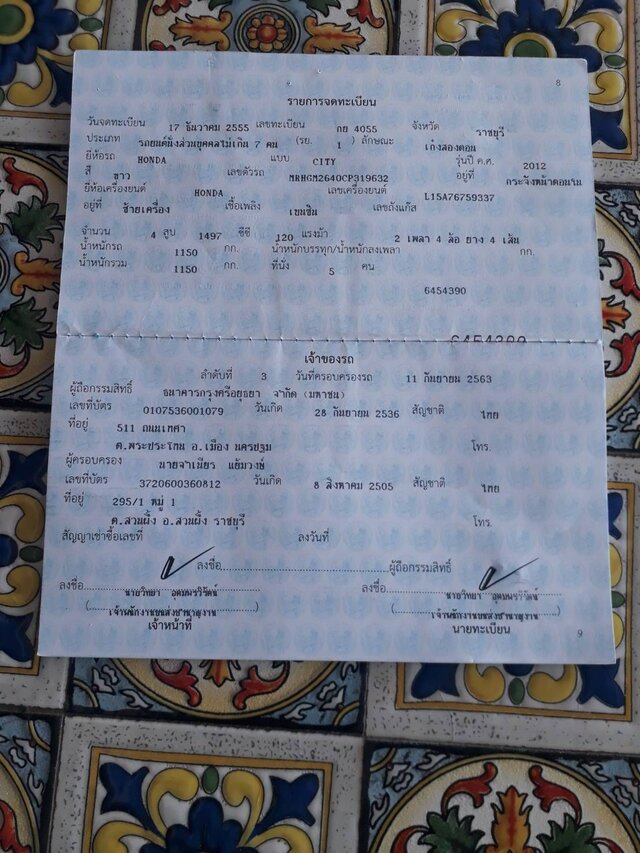 8
รายการจดทะเบียน
วันจดทะเบียน 17 ธันวาคม 2555 เลขทะเบียน กย 4055 จังหวัด ราชบุรี
ประเภท รถยนต์นั่งส่วนบุคคลไม่เกิน 7 คน (รย. 1 ) ลักษณะ เก๋งสองตอน
ยี่ห้อรถ HONDA แบบ CITY รุ่นปี ค.ศ. 2012
สี ขาว เลขตัวรถ MRHGM2640CP319632 อยู่ที่ กระจังหน้าตอนบน
ยี่ห้อเครื่องยนต์ HONDA เลขเครื่องยนต์ L15A76759337
อยู่ที่ ซ้ายเครื่อง เชื้อเพลิง เบนซิน เลขถังแก๊ส
จำนวน 4 สูบ 1497 ซีซี 120 แรงม้า 2 เพลา 4 ล้อ ยาง 4 เส้น
น้ำหนักรถ 1150 กก. น้ำหนักบรรทุก/น้ำหนักลงเพลา กก.
น้ำหนักรวม 1150 กก. ที่นั่ง 5 คน
6454390
6454390
เจ้าของรถ
ลำดับที่ 3 วันที่ครอบครองรถ 11 กันยายน 2563
ผู้ถือกรรมสิทธิ์ ธนาคารกรุงศรีอยุธยา จำกัด (มหาชน)
เลขที่บัตร 0107536001079 วันเกิด 28 กันยายน 2536 สัญชาติ ไทย
ที่อยู่ 511 ถนนเทศา
ต.พระประโทน อ.เมือง นครปฐม โทร.
ผู้ครอบครอง นายจำเนียร แย้มวงษ์
เลขที่บัตร 3720600360812 วันเกิด 8 สิงหาคม 2505 สัญชาติ ไทย
ที่อยู่ 295/1 หมู่ 1
ต.สวนผึ้ง อ.สวนผึ้ง ราชบุรี โทร.
สัญญาเช่าซื้อเลขที่ ลงวันที่
ลงชื่อ ผู้ถือกรรมสิทธิ์
ลงชื่อ นายวิทยา ลงชื่อ นายวิทยา
(เจ้าพนักงานขนส่งชำนาญงาน) (เจ้าพนักงานขนส่งชำนาญงาน)
เจ้าหน้าที่ นายทะเบียน
9